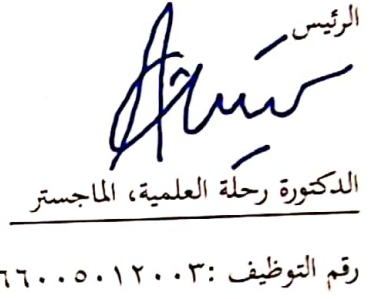 الرئيس
الدكتورة رحلة العلمية، الماجستر
رقم التوظيف :٦٦٠٠٥٠١٢٠٠٣